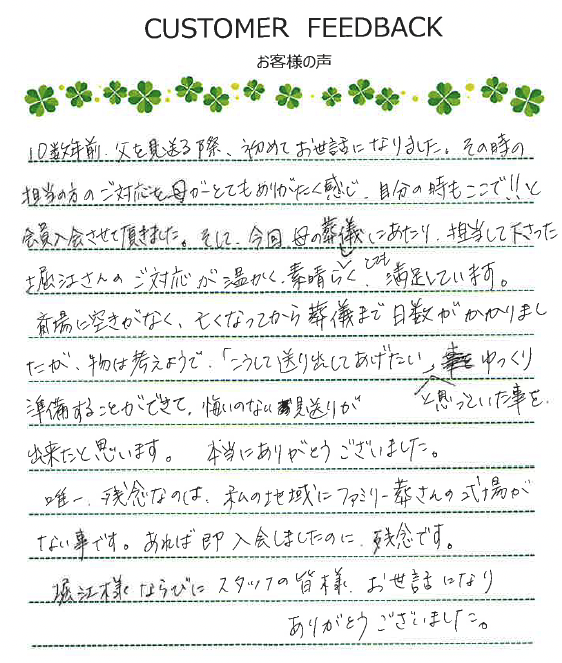 CUSTOMER FEEDBACK
お客様の声
10数年前、父を見送る際、初めてお世話になりました。その時の
担当の方のご対応を母がとてもありがたく感じ、自分の時もここで!!と
会員入会させて頂きました。そして、今回母の葬儀にあたり、担当して下さった
堀江さんのご対応が温かく、素晴らしく、とても満足しています。
斎場に空きがなく、亡くなってから葬儀まで日数がかかりまし
たが、物は考えようで、「こうして送り出してあげたい」と思っていた事をゆっくり
準備することができて、悔いのない見送りが
出来たと思います。 本当にありがとうございました。
唯一、残念なのは、私の地域にファミリー葬さんの式場が
ない事です。あれば即入会しましたのに、残念です。
堀江様ならびにスタッフの皆様、お世話になり
ありがとうございました。